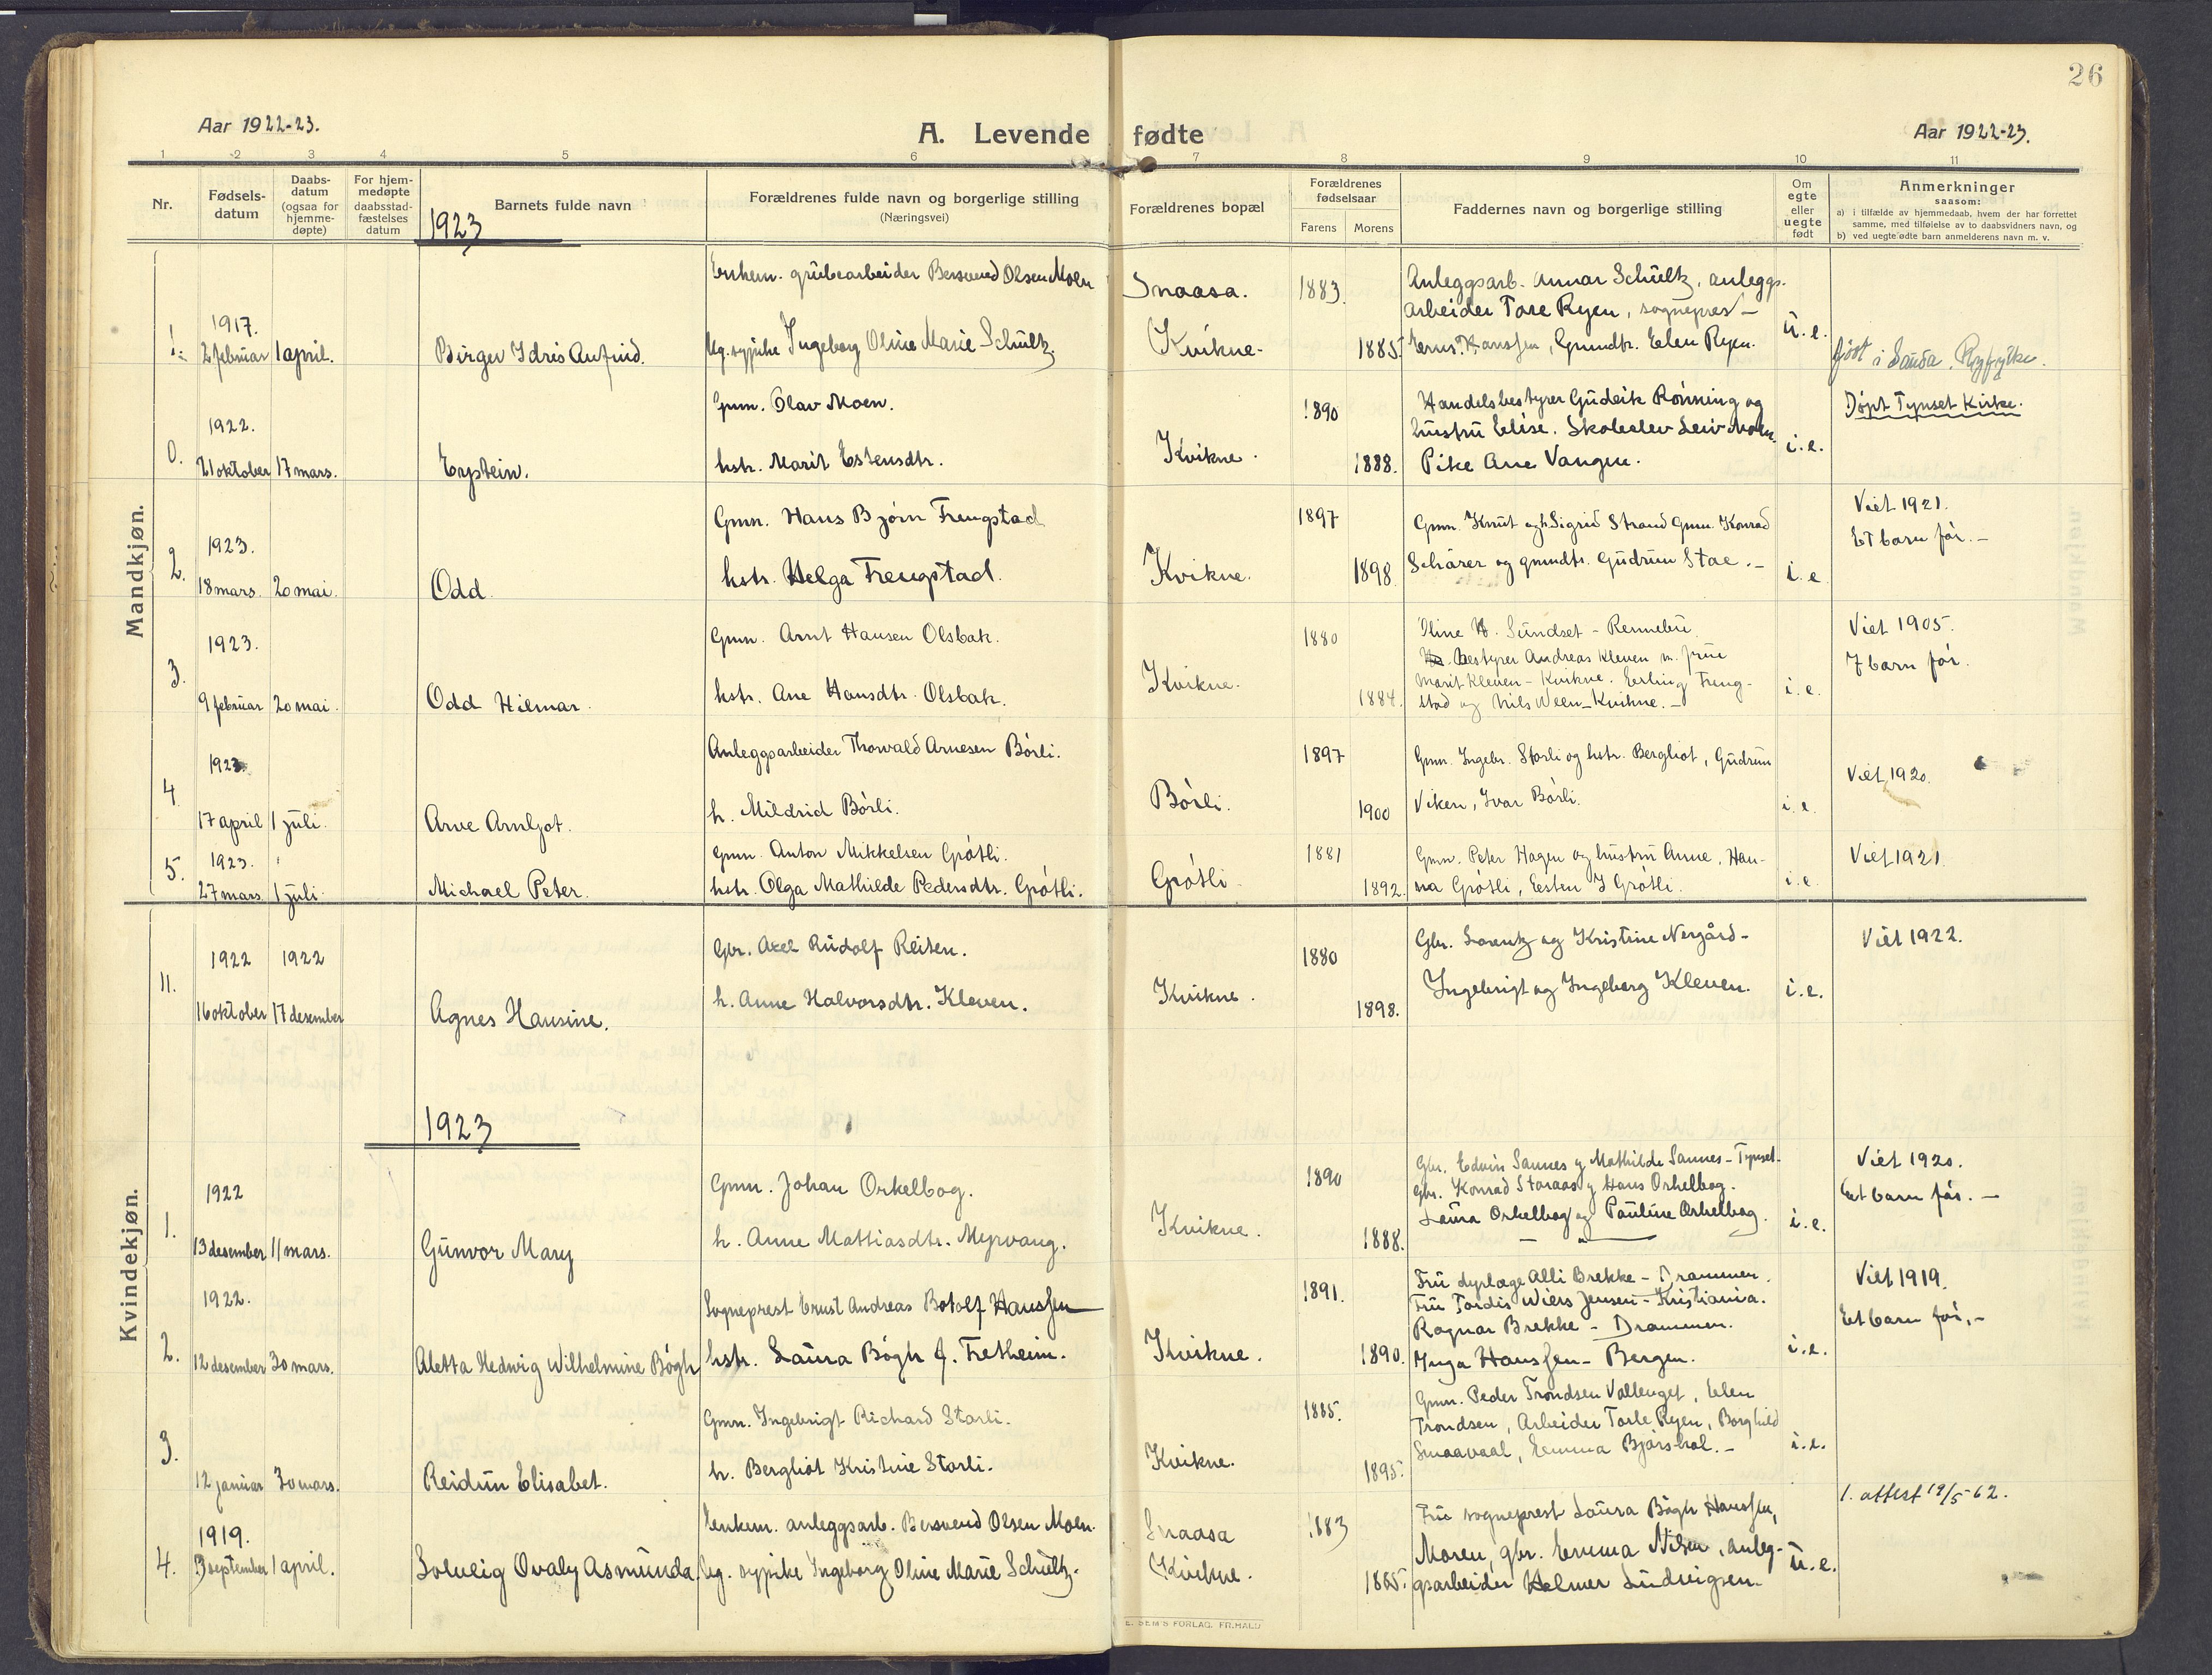 26
Aar 1922-23.
A. Levende fødte
Aar 1922-23.
1 2 3 4 5 6 7 8 9 10 11
Nr.
Fødsels-
datum
Daabs-
datum
(ogsaa for
hjemme-
døpte)
For hjem-
medøpte
daabsstad-
fæstelses
datum
Barnets fulde navn
Forældrenes fulde navn og borgerlige stilling
(Næringsvei)
Forældrenes bopæl
Forældrenes
fødselsaar
Farens
Morens
Faddernes navn og borgerlige stilling
Om
egte
eller
uegte
født
Anmerkninger
saasom:
a) i tilfælde av hjemmedaab, hvem der har forrettet
samme, med tilføielse av to daabsvidners navn, og
b) ved uegte fødte barn anmelderens navn m. v.
1923
Mandkjøn.
1.
1917.
2 februar
1 april.
Birger Idris Aufind.
Enkem. grubearbeider Bersvend Olsen Moen
Ug. sypike Ingeborg Oline Marie Schultz.
Snaasa.
Kvikne.
1883.
1885.
Anleggsarb. Annar Schultz, anleggs-
arbeider Tore Ryen, sogneprest
Ernst Hanssen, Gmndtr. Elen Ryen.
u. e.
født i Sauda, Ryfylke.
0.
1922.
21 oktober
17 mars.
Eystein.
Gmn. Olav Moen.
hstr. Marit Estensdtr.
Kvikne.
1890
1888.
Handelsbestyrer Gudeik Rønning og
hustru Elise. Skoleelev Leiv Moen.
Pike Ane Vangen.
i. e.
Døpt Tynset Kirke.
2.
1923.
18 mars.
20 mai.
Odd.
Gmn. Hans Bjørn Frengstad
hstr. Helga Frengstad.
Kvikne.
1897
1898.
Gmn. Knut og h. Sigrid Strand Gmn. Konrad
Schärer og gmndtr. Gudrun Stae. -
i. e.
Viet 1921.
Et barn før. -
3.
1923.
9 februar
20 mai.
Odd Hilmar.
Gmn. Arnt Hansen Olsbak.
hstr. Ane Hansdtr. Olsbak.
Kvikne.
1880
1884.
Oline H. Sundset - Rennebu.
bestyrer Andreas Kleven m. frue
Marit Kleven - Kvikne. Erling Freng-
stad og Nils Ween - Kvikne. -
i. e.
Viet 1905.
7 barn før.
4.
1923.
17 april
1 juli.
Arve Arnljot.
Anleggsarbeider Thorvald Arnesen Børli.
h. Mildrid Børli.
Børli.
1897
1900
Gmn. Ingebr. Storli og hstr. Bergliot, Gudrun
Viken, Ivar Børli.
i. e.
Viet 1920.
5.
1923.
27 mars.
1 juli.
Michael Peter.
Gmn. Anton Mikkelsen Grøtli.
hstr. Olga Mathilde Pedersdtr. Grøtli.
Grøtli.
1881
1892.
Gmn. Peter Hagen og hustru Anne, Han-
na Grøtli, Esten J Grøtli.
i. e.
Viet 1921.
Kvindekjøn.
11.
1922
16 oktober
1922
17 desember
Agnes Hansine.
Gbr. Axel Rudolf Reiten.
h. Anne Halvorsdtr. Kleven.
Kvikne.
1880
1898.
Gbr. Lorentz og Kristine Nergård -
Ingebrigt og Ingeborg Kleven.
i. e.
Viet 1922.
1923
1.
1922
13 desember
11 mars.
Gunvor Mary
Gmn. Johan Orkelbog.
h. Anne Mattiasdtr. Myrvang.
Kvikne.
1890
1888.
Gbr. Edvin Sannes og Mathilde Sannes - Tynset.
Gbr. Konrad Storaas og Hans Orkelbog.
Laura Orkelbog og Pauline Orkelbog.
i. e.
Viet 1920.
Et barn før. -
2.
1922.
12 desember
30 mars.
Aletta Hedvig Wilhelmine Bøgh
Sogneprest Ernst Andreas Botolf Hanssen
hstr. Laura Bøgh f. Fretheim.
Kvikne.
1891.
1890.
Fru dyrlæge Alli Brekke - Drammen.
Fru Tordis Wiers Jensen - Kristiania.
Ragnar Brekke - Drammen.
Inga Hanssen - Bergen.
i. e.
Viet 1919.
Et barn før. -
3.
12 januar
30 mars.
Reidun Elisabet.
Gmn. Ingebrigt Richard Storli.
h. Bergliot Kristine Storli.
Kvikne.
1885.
1895.
Gmn. Peder Trondsen Vollenget, Elen
Trondsen, Arbeider Tarle Ryen, Borghild
Smaavaal, Emma Bjørshol. -
i. e.
4.
1919.
3 september
1 april.
Solveig Ovaly Asmunda.
Enkem. anleggsarb. Bersvend Olsen Moen.
Ug. sypike Ingeborg Oline Marie Schultz.
Snaasa
Kvikne.
1883
1885.
Fru sogneprest Laura Bøgh Hanssen,
Moren, gbr. Emma Nilsen, anleg-
gsarbeider Helmer Ludvigsen.
u. e.
1. attest 19/5 62.
E. SEM'S FORLAG, FR.HALD